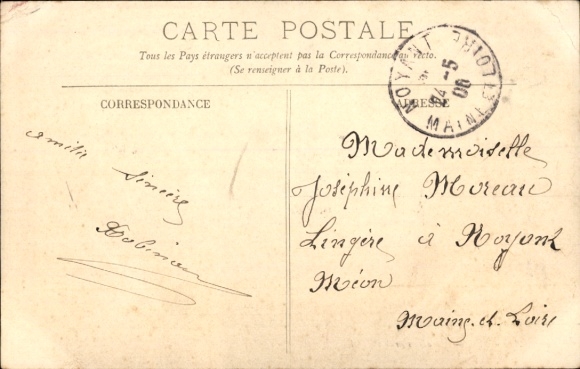 CARTE POSTALE
Tous les Pays étrangers n'acceptent pas la Correspondance au recto.
(Se renseigner à la Poste).
CORRESPONDANCE
ADRESSE
NOYANT
MAINE ET LOIRE
24 -5
06
amitié
sincère
Mademoiselle
Joséphine Moreau
Lingère à Noyant
Méon
Maine-et-Loire